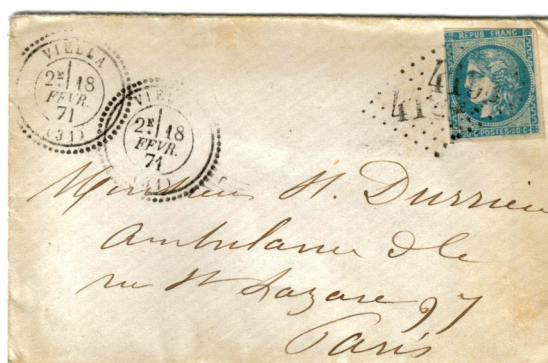 VIELLA
2E 18
FEVR.
71
(31)
VIELLA
2E 18
FEVR.
71
(31)
REPUB FRANC
POSTES 20 C
Monsieur H. Durrieu
Ambulance de
rue St Lazare 97
Paris